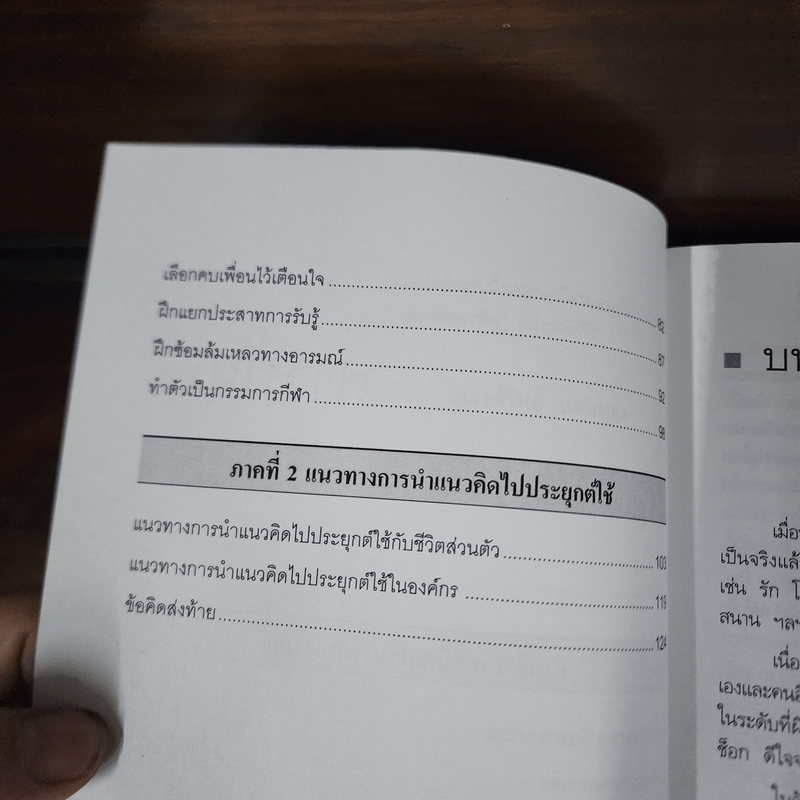 เลือกคบเพื่อนไว้เตือนใจ ........ 82
ฝึกแยกประสาทการรับรู้ ........ 87
ฝึกซ้อมล้มเหลวทางอารมณ์ ........ 92
ทำตัวเป็นกรรมการกีฬา ........ 98
ภาคที่ 2 แนวทางการนำแนวคิดไปประยุกต์ใช้
แนวทางการนำแนวคิดไปประยุกต์ใช้กับชีวิตส่วนตัว ........ 103
แนวทางการนำแนวคิดไปประยุกต์ใช้ในองค์กร ........ 119
ข้อคิดส่งท้าย ........ 124
เป็นจริงแล้
เช่น รัก
สนาน ฯลฯ
เนื่อ
ในระดับที่
ช็อก ดีใจ